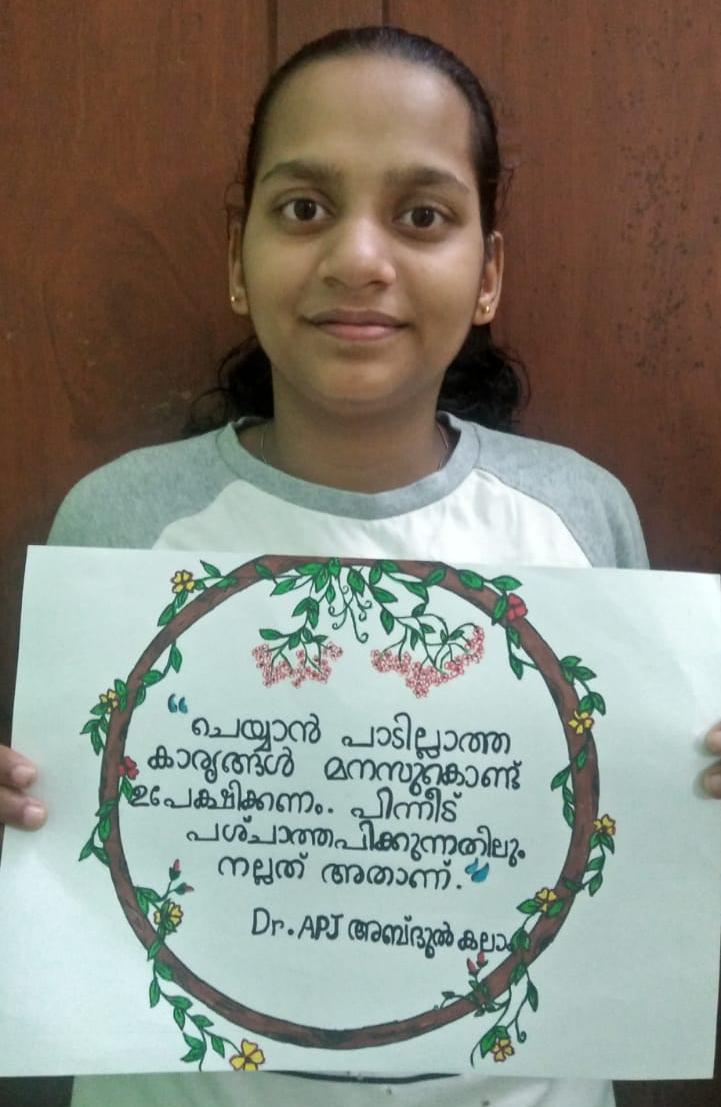 “ചെയ്യാൻ പാടില്ലാത്ത
കാര്യങ്ങൾ മനസുകൊണ്ട്
ഉപേക്ഷിക്കണം. പിന്നീട്
പശ്ചാത്തപിക്കുന്നതിലും
നല്ലത് അതാണ്.”
Dr. APJ അബ്ദുൽ കലാം